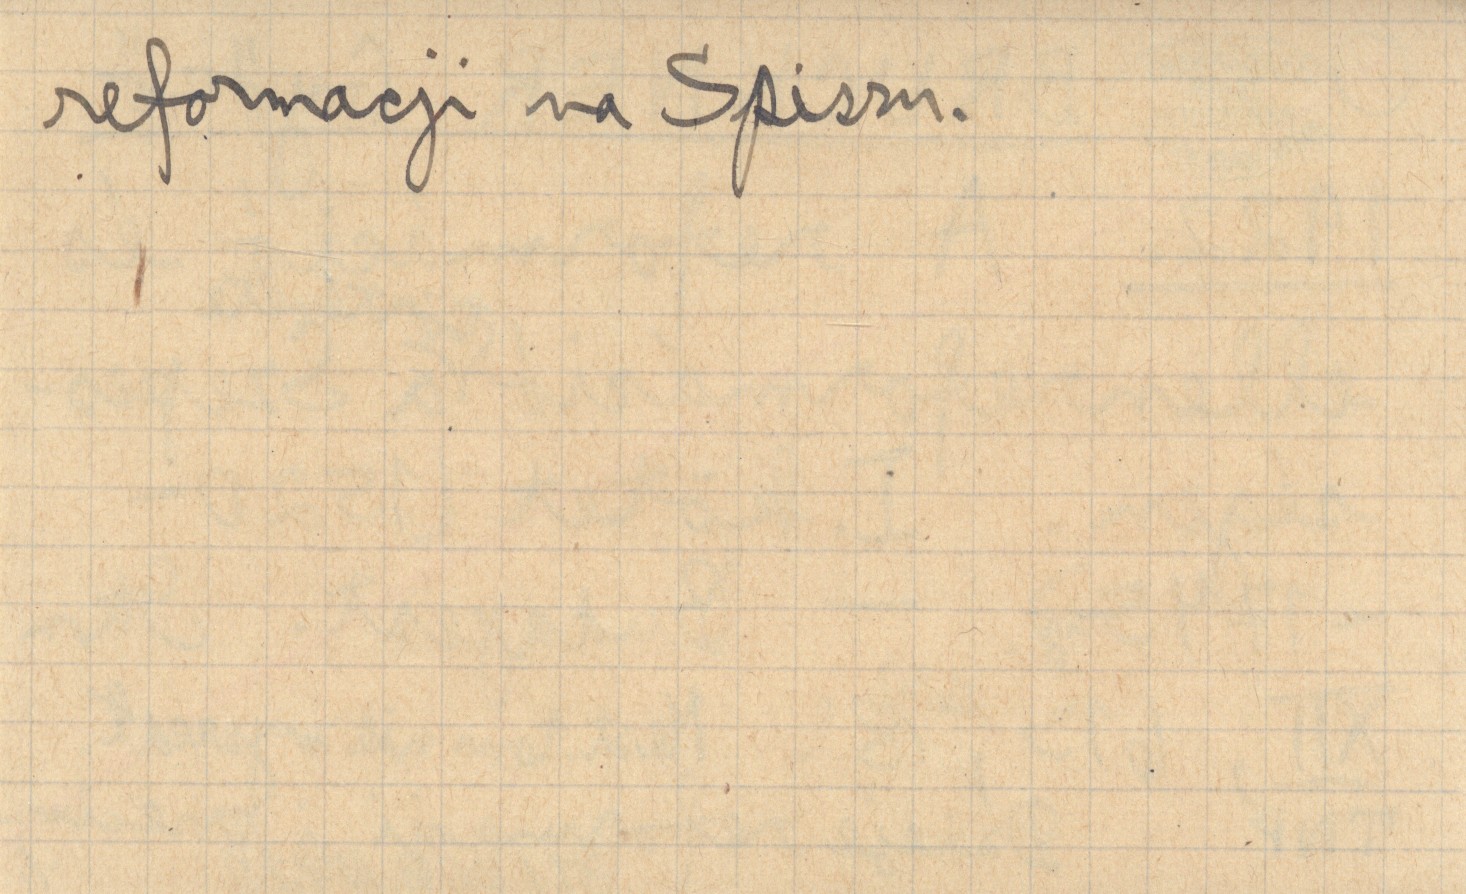 reformacji na Spiszu.